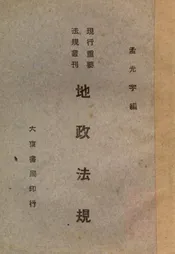 孟光宇編
現行重要
法規叢刊
地政法規
大東書局印行